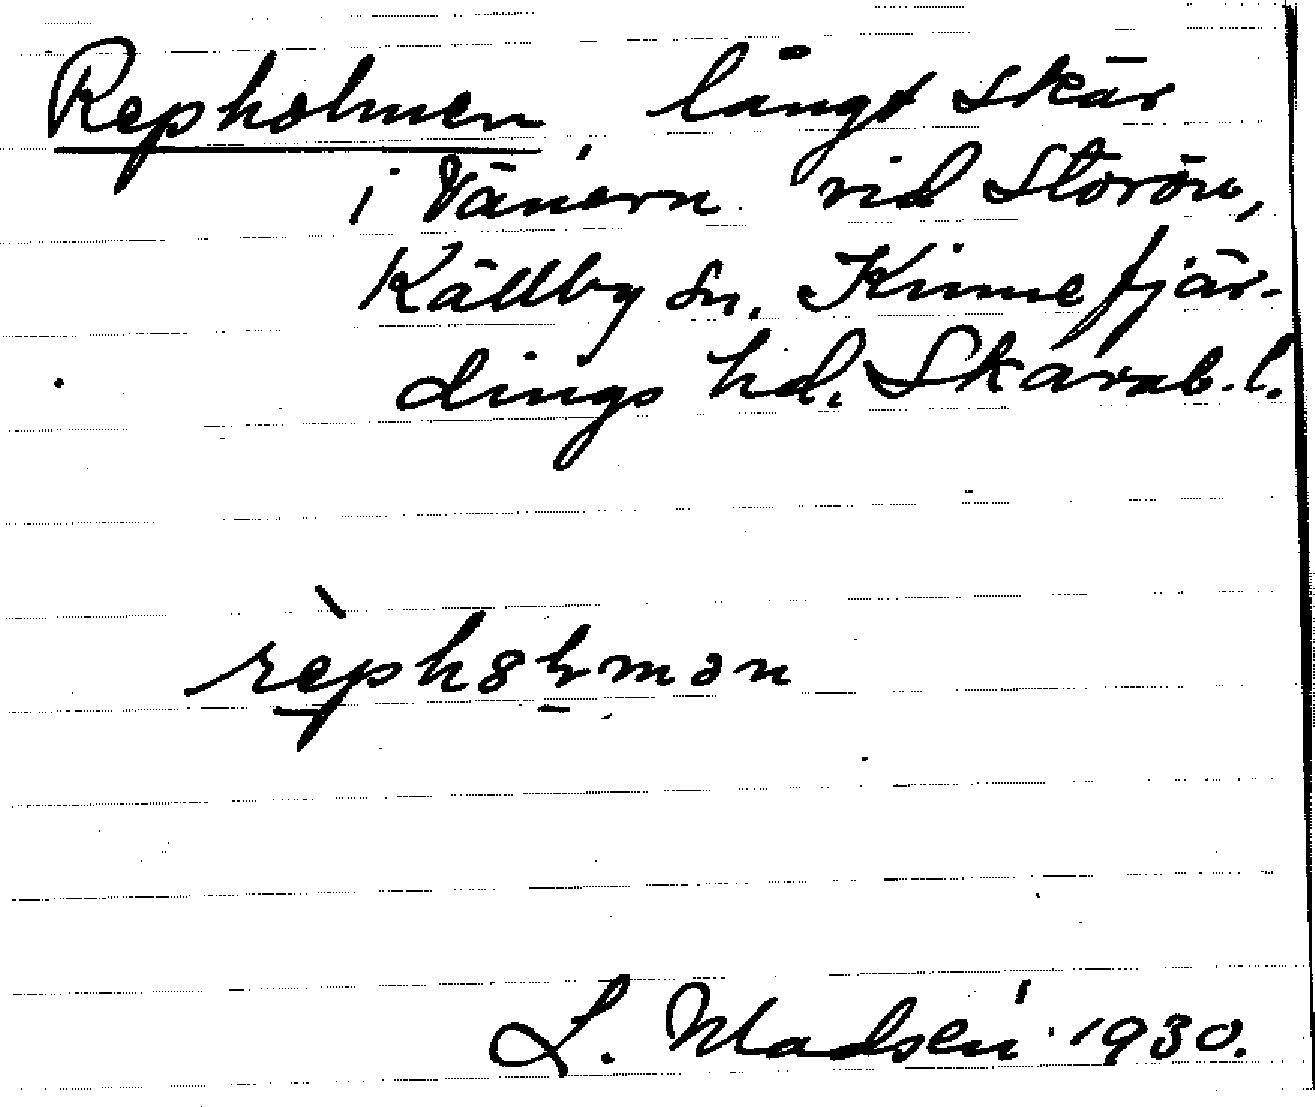 Repholmen, långt skär
i Vänern vid Storön,
Källby sn. Kinnefjär-
dings hd. Skarab. l.
L. Madsén 1930.